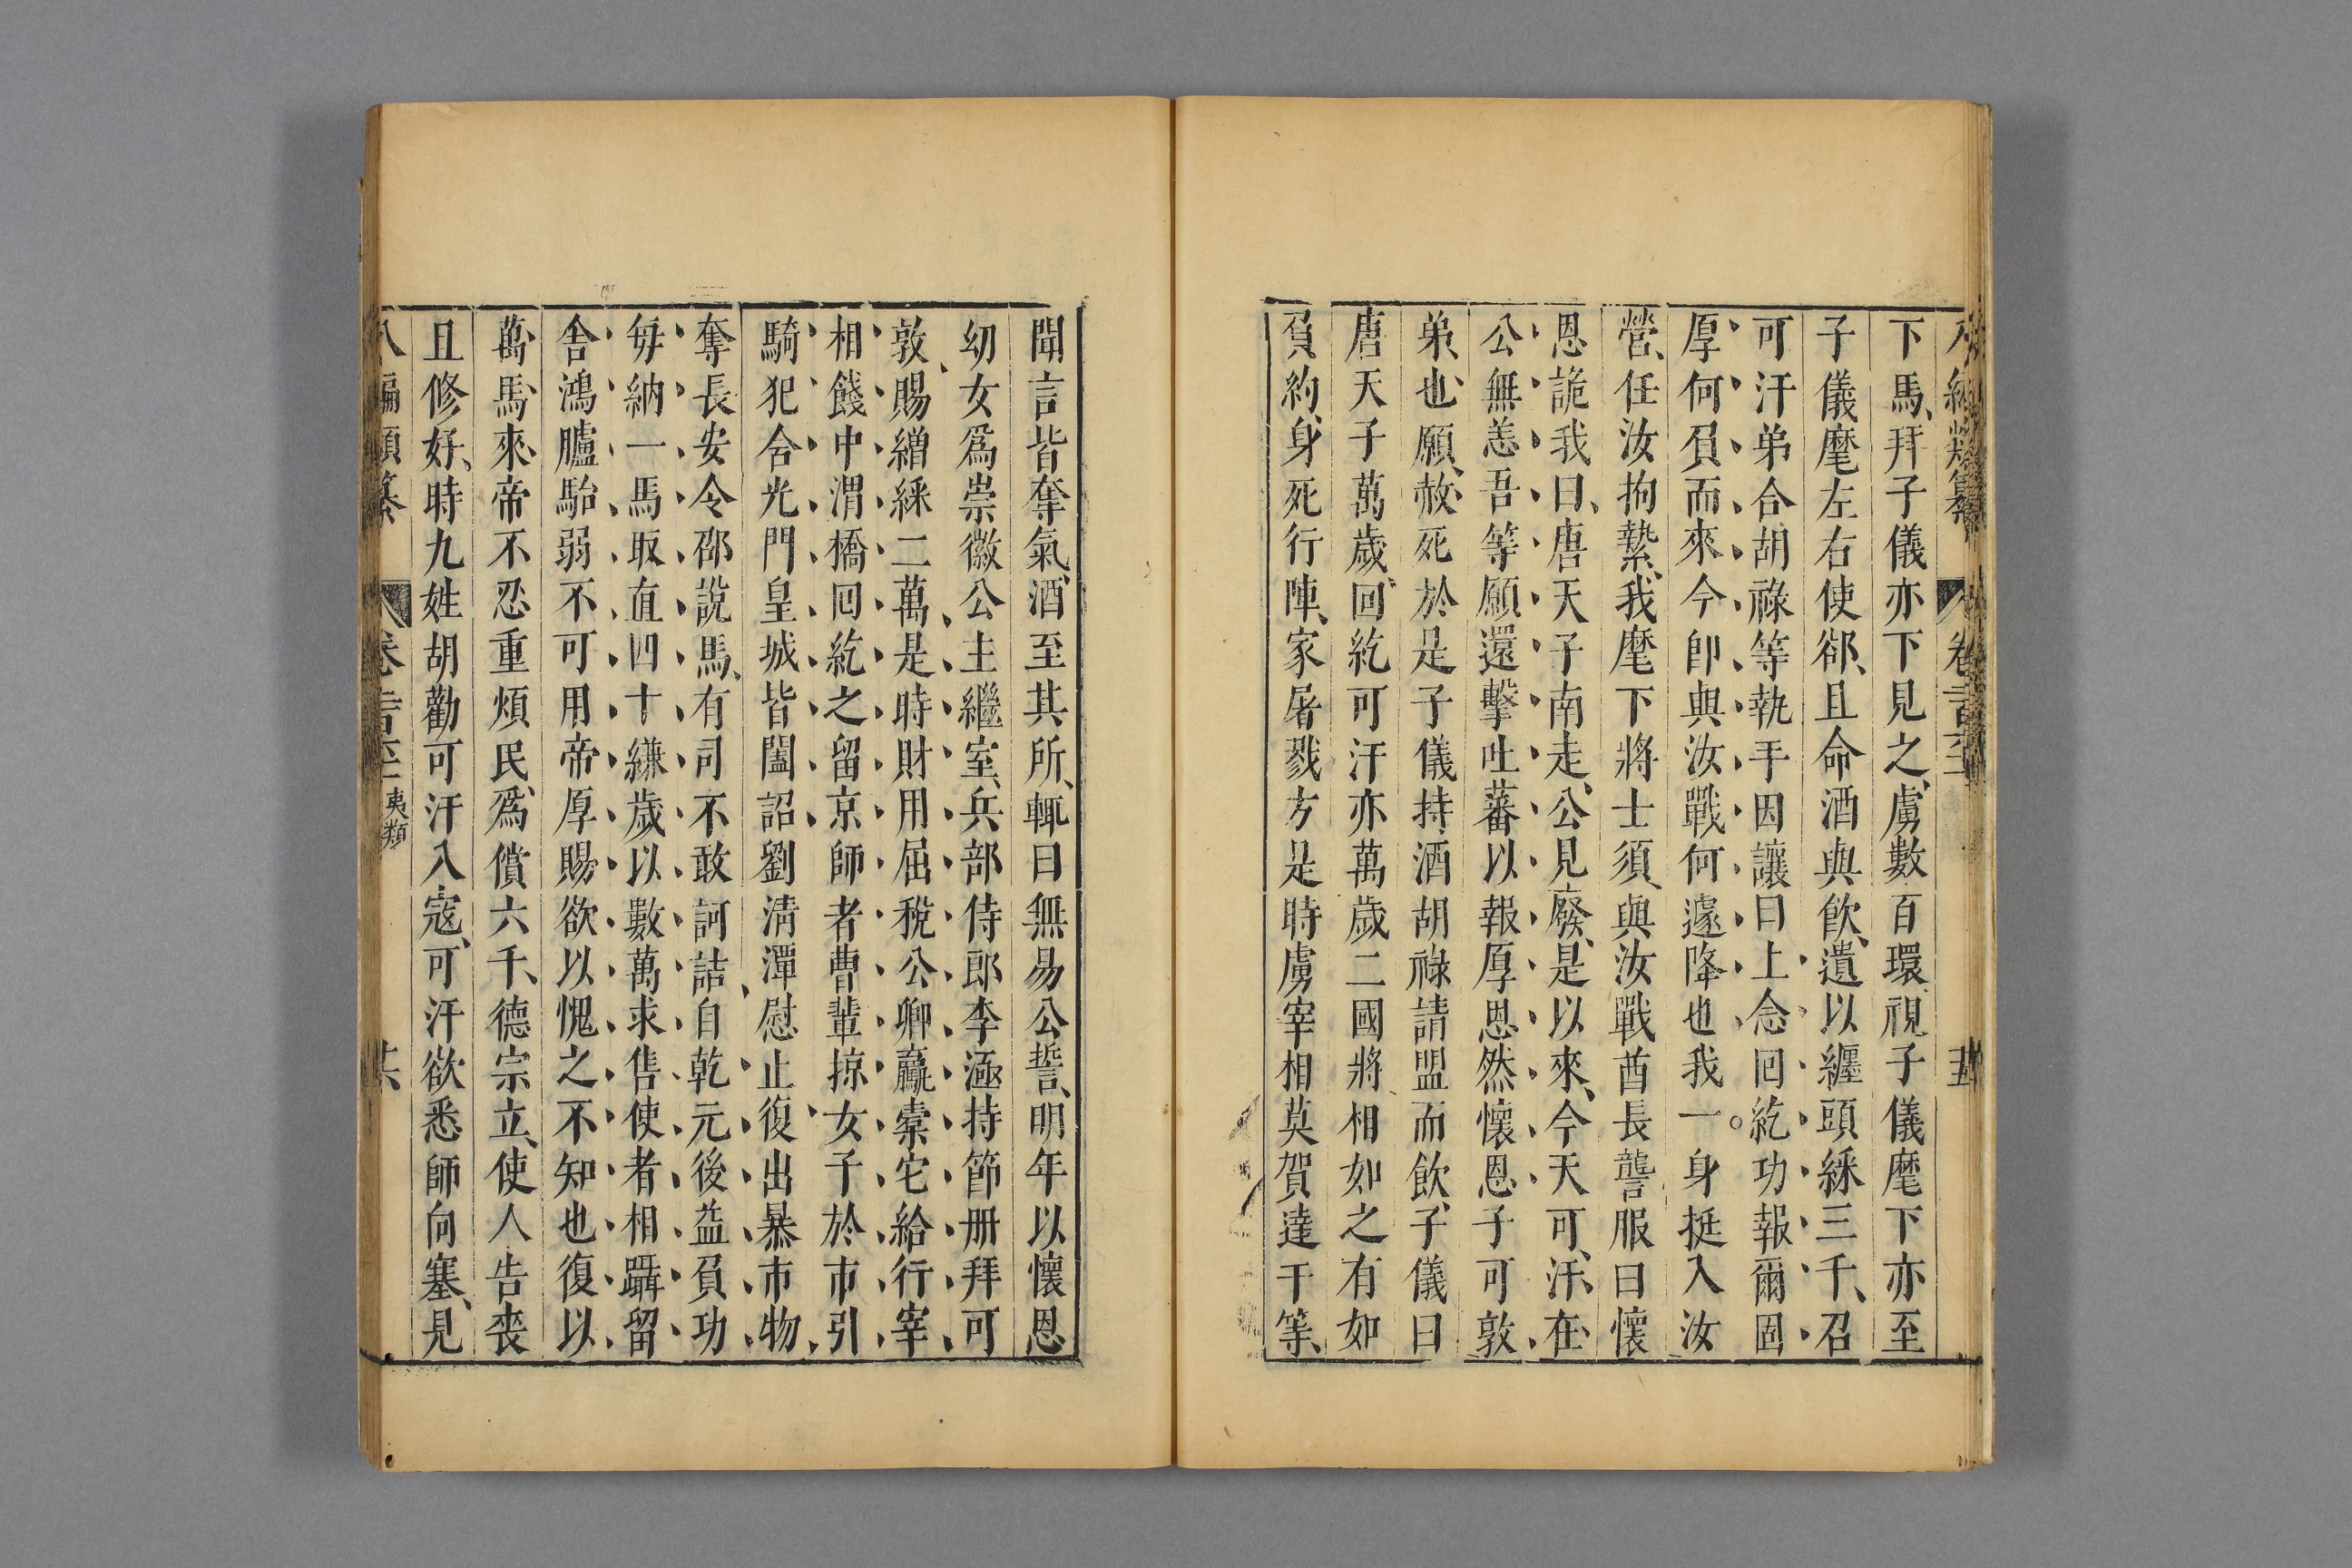 下馬、拜子儀亦下見之、虜數百環視子儀麾下亦至
子儀麾左右使郤、且命酒與飲、遺以纏頭綵三千、召
可汗弟合胡祿等執手因讓曰上念回紇功報爾固
厚何負而來今卽與汝戰何遽降也我一身挺入汝
營、任汝拘縶、我麾下將士須與汝戰酋長讋服曰懷
恩詭我曰、唐天子南走、公見廢、是以來、今天可汗、在
公無恙吾等願還擊吐蕃以報厚恩然懷恩子可敦
弟、也、願、赦死於是子儀持酒胡祿請盟而飲、子儀曰
唐天子萬歲、回紇可汗亦萬歲二國將相如之有如
負約、身死行陣、家屠戮方是時虜宰相莫賀達干等、
聞言皆奪氣、酒至其所、輒曰無易公誓、明年以懷恩
幼女爲崇徽公主繼室、兵部侍郎李涵持節册拜可
敦、賜繒綵二萬、是時財用屈稅公卿驘橐它給行宰
相餞中渭橋回紇之留京師者曹輩掠女子於市引
騎犯含光門皇城皆闔詔劉清潭慰止復出暴市物
奪長安令邵說馬、有司不敢訶詰、自乾元後益負功
每納一馬取直四十縑歲以數萬求售使者相躡留
舍鴻臚駘弱不可用帝厚賜欲以愧之不知也復以
萬馬來、帝不忍重煩民、爲償六千、德宗立、使人告喪
且修好、時九姓胡勸可汗入寇、可汗欲悉師向塞、見
八編類纂 卷 夷類